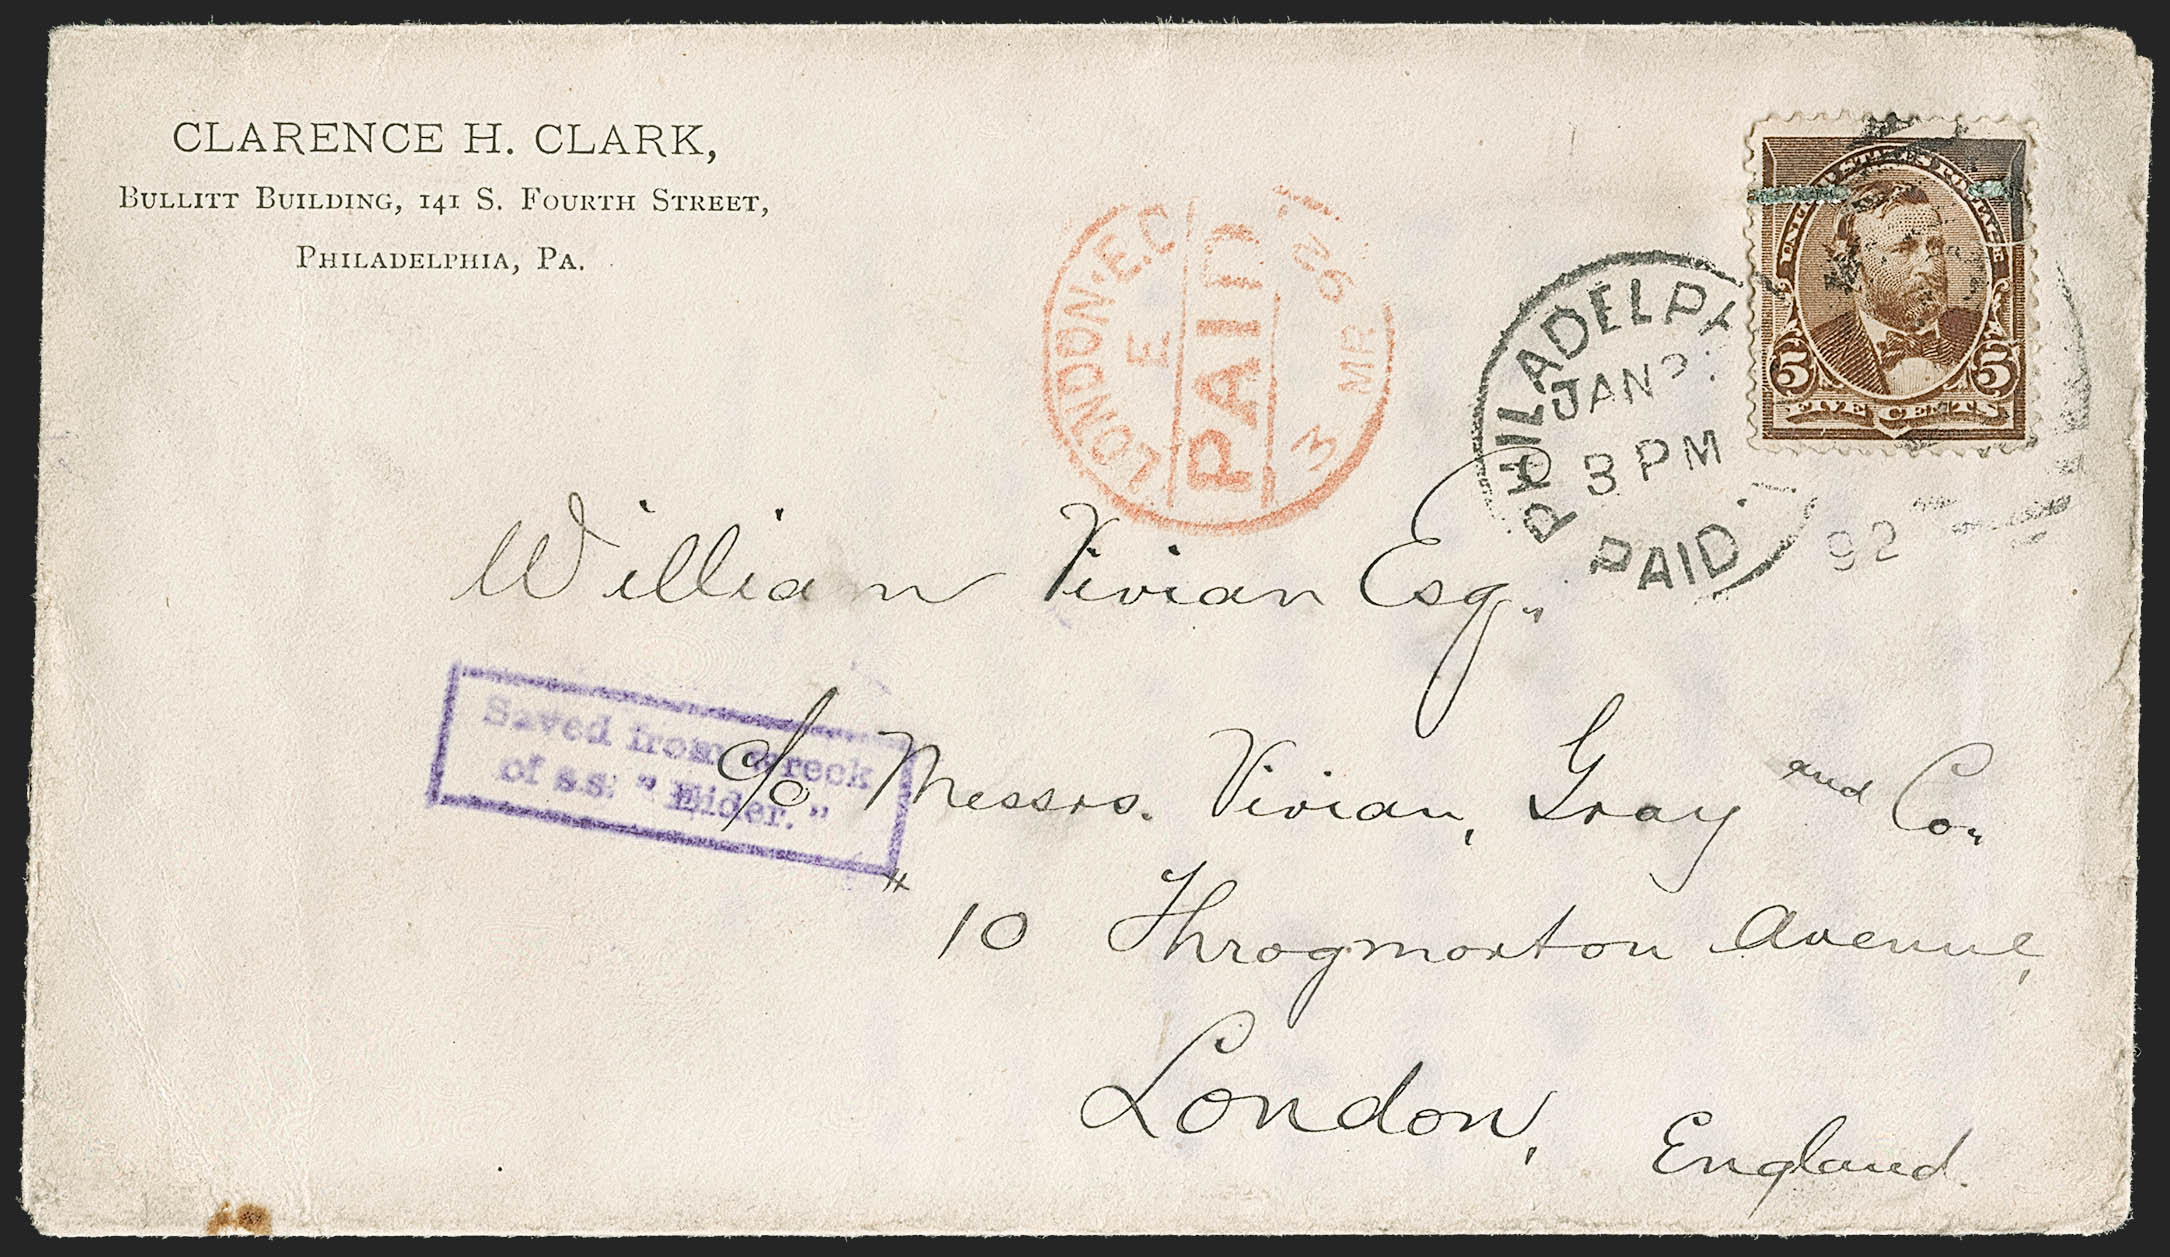 CLARENCE H. CLARK,
BULLITT BUILDING, 141 S. FOURTH STREET,
PHILADELPHIA, PA.
LONDON·E.C
E
PAID
3 MR 92
PHILADELPH
JAN
3 PM
PAID.
92
UNITED STATES POSTAGE
5 5
FIVE CENTS
William Vivian Esq.
Saved from wreck
of s.s. "Eider."
c/o Messrs. Vivian, Gray and Co.
10 Throgmorton Avenue,
London,
England.